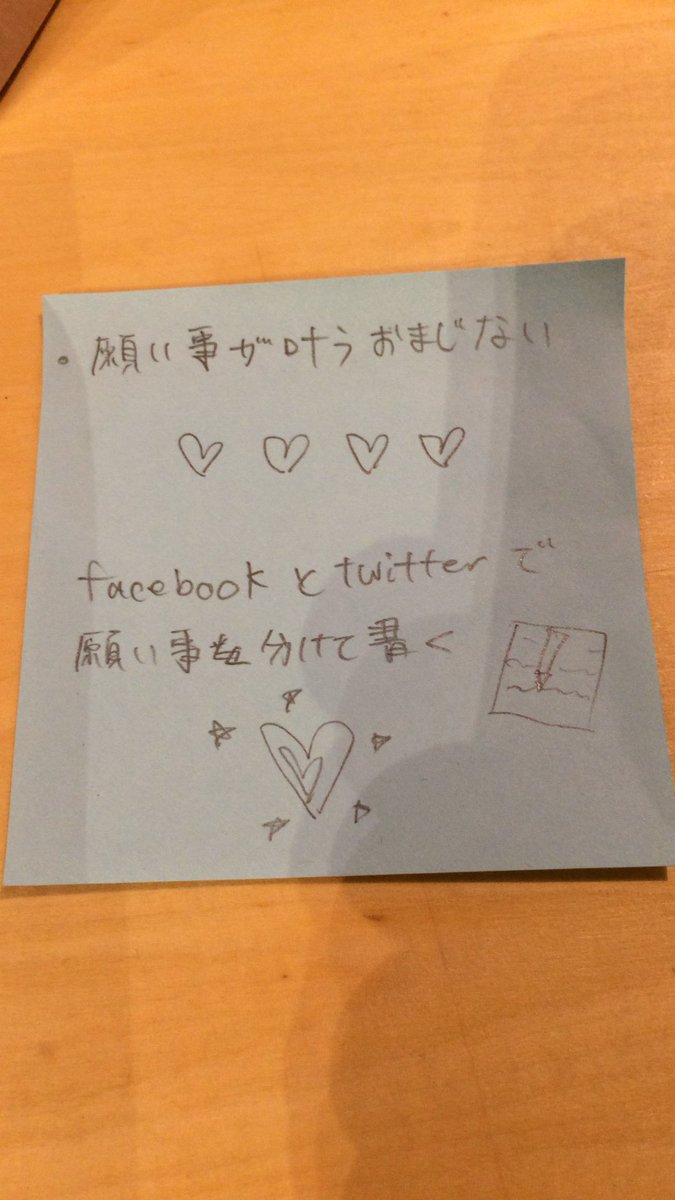 。願い事が叶うおまじない
facebookとtwitterで
願い事を分けて書く